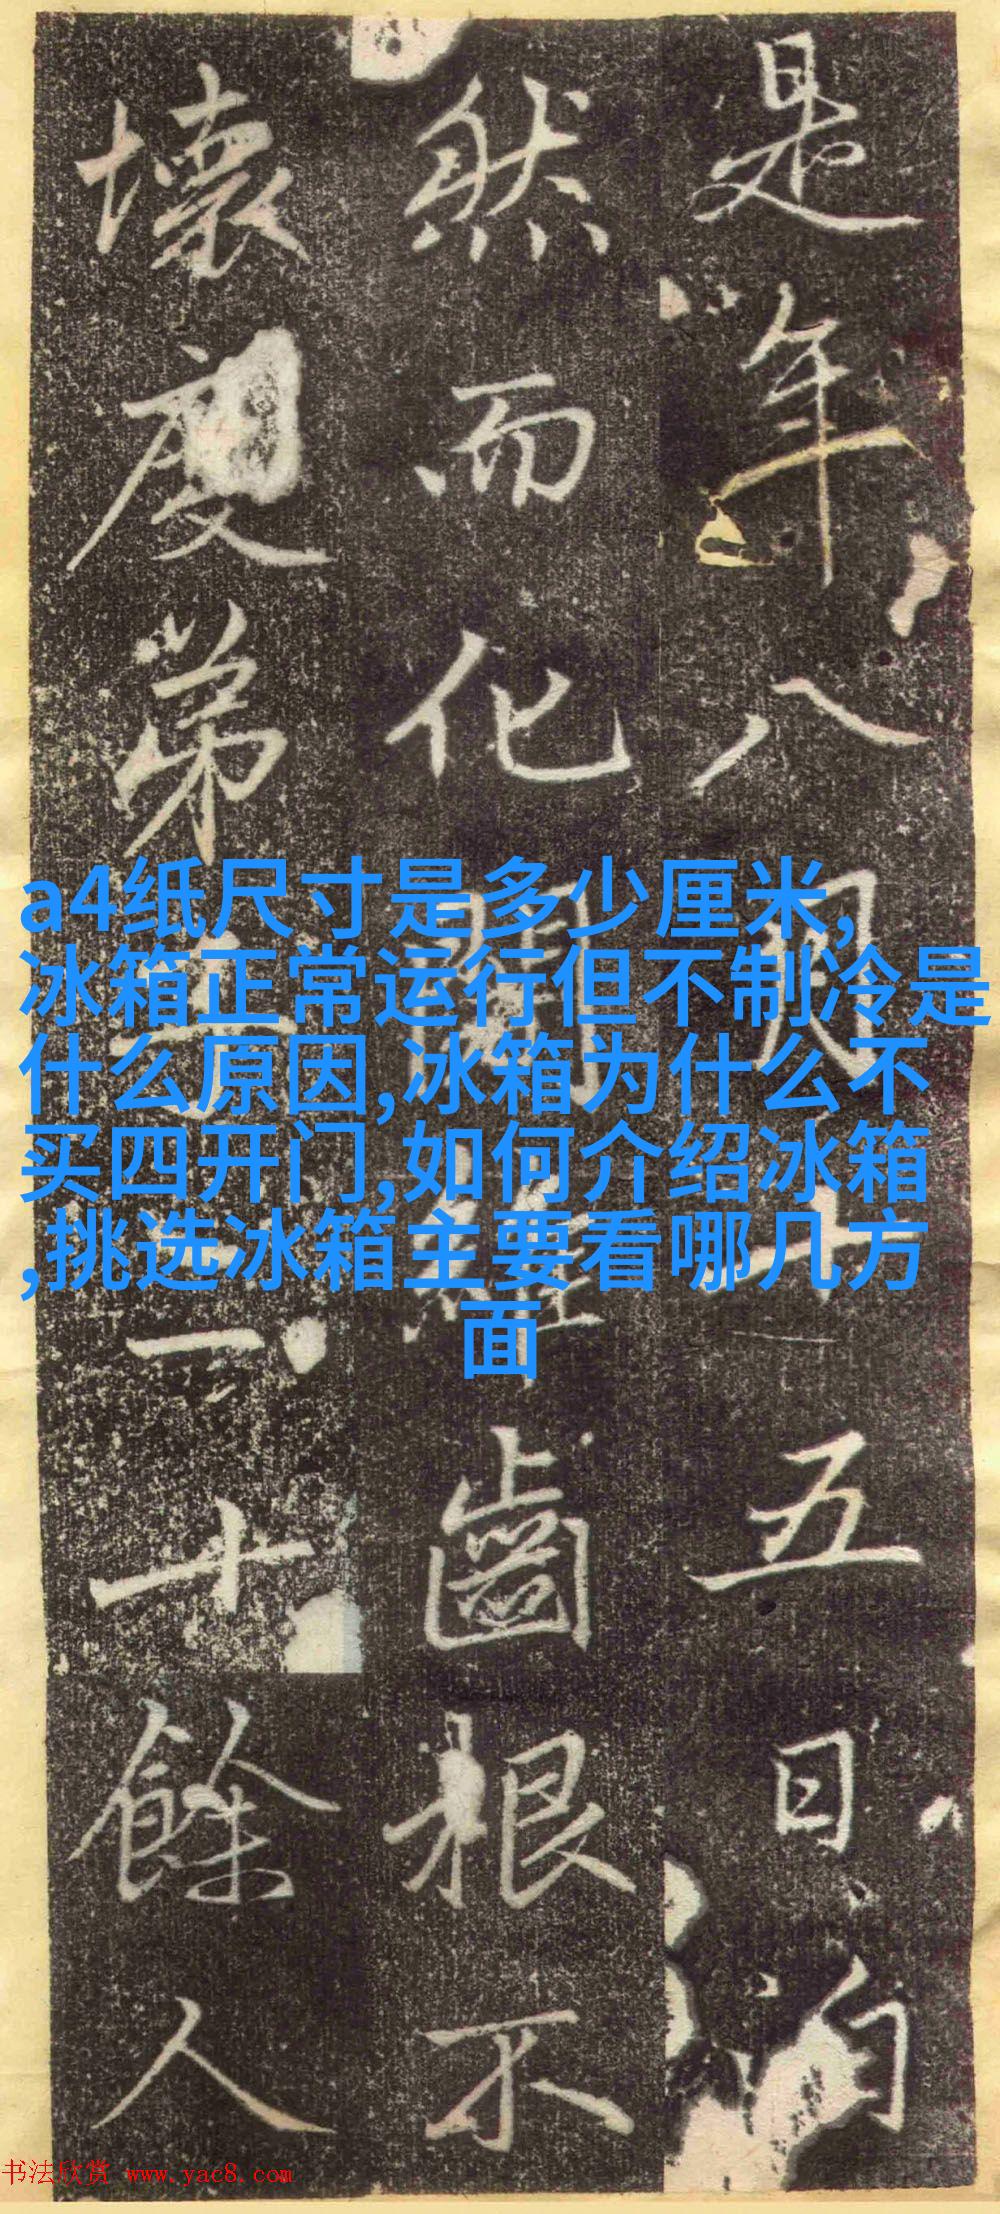 是年八月十五日自
然而化闍維齒根不
壞度弟子一十餘人
a4纸尺寸是多少厘米,
冰箱正常运行但不制冷是
什么原因,冰箱为什么不
买四开门,如何介绍冰箱
,挑选冰箱主要看哪几方
面
书法欣赏 www.yac8.com